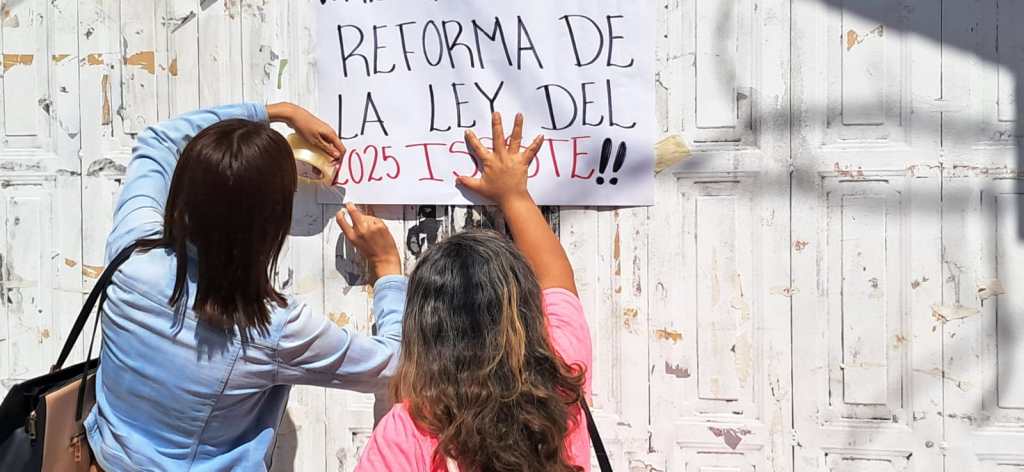 REFORMA DE
LA LEY DEL
2025 ISSSTE!!